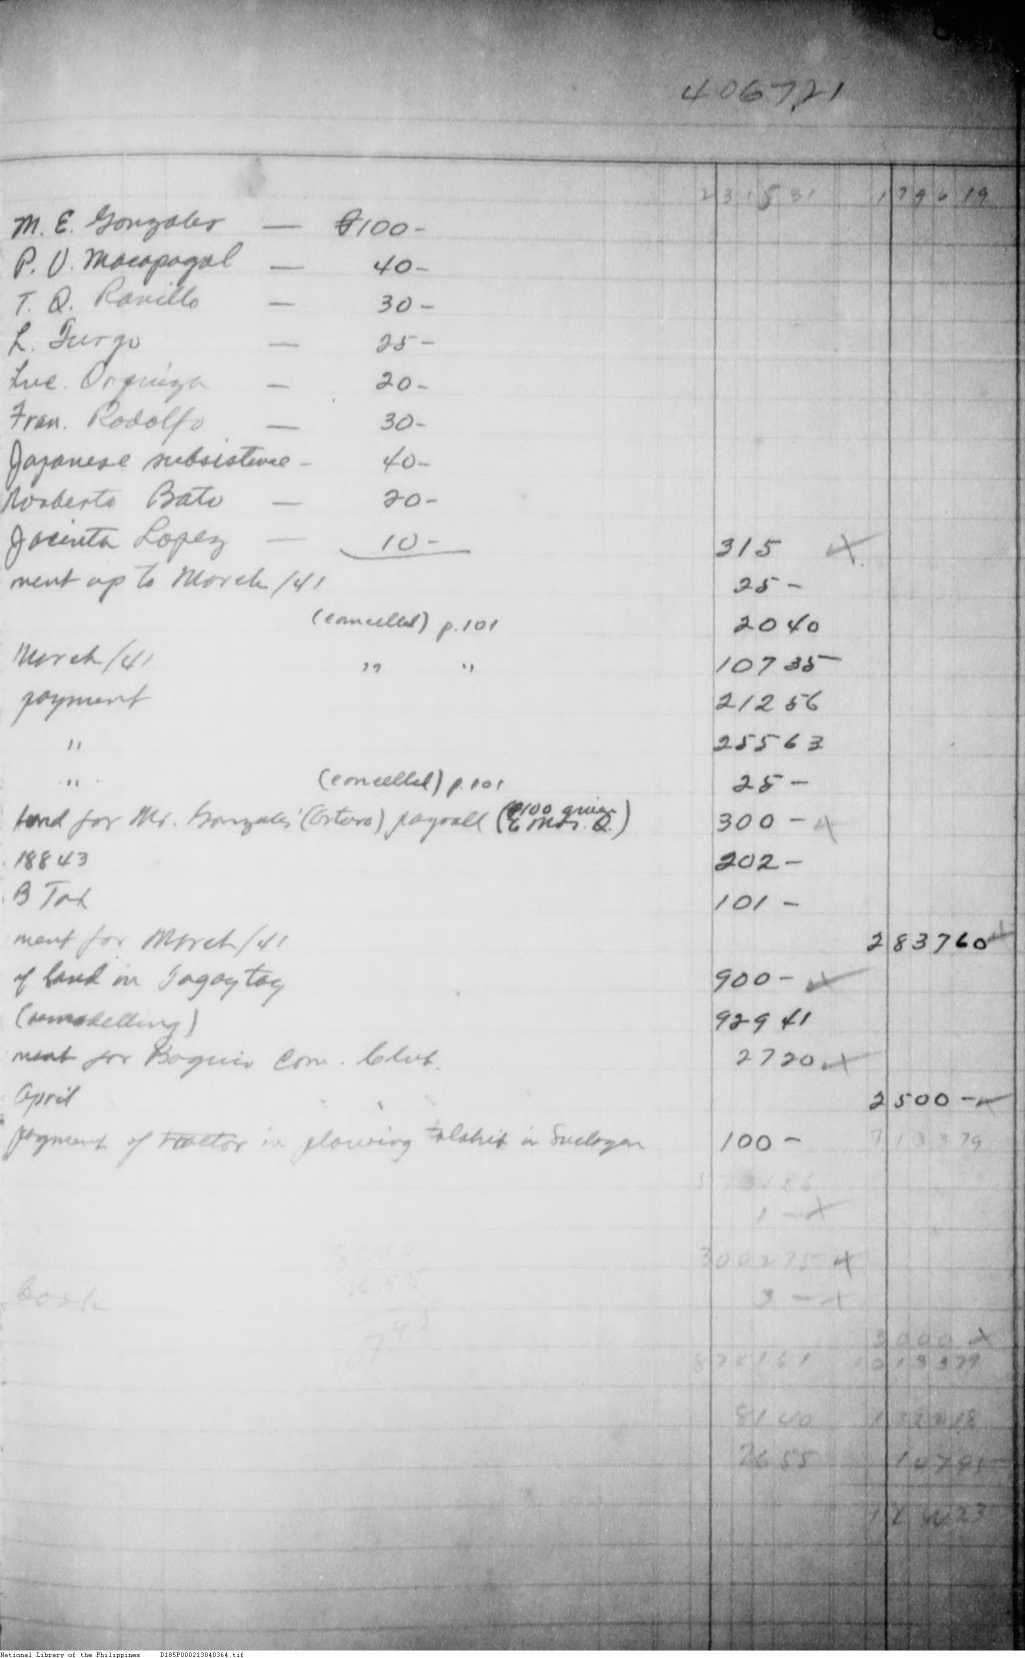 406721
231531 179619
M. E. Gonzales — ₱100-
P. V. Macapagal — 40-
T. Q. Ranillo — 30-
L. Turzo — 25-
Luc. Orquiza — 20-
Fran. Rodolfo — 30-
Japanese subsistence - 40-
Norberto Bato — 20-
Jacinta Lopez — 10- 315
ment up to March/41 25-
(cancelled) p.101 2040
March/41 " " 10735
payment 21256
" 25563
" (cancelled) p.101 25-
for Mr. Gonzales' (Arturo) payroll (₱100 given 300-
Mrs. Q.)
18843 202-
B Tax 101-
ment for March/41 283760
of land in Tagaytay 900-
(remodelling) 92941
ment for Baguio Com. Club. 2720
April 2500-
payment of tractor in plowing in 100- 713379
1-
300275
book 3-
3000
1013379
8140
2655
National Library of the Philippines D185P000213840364.tif